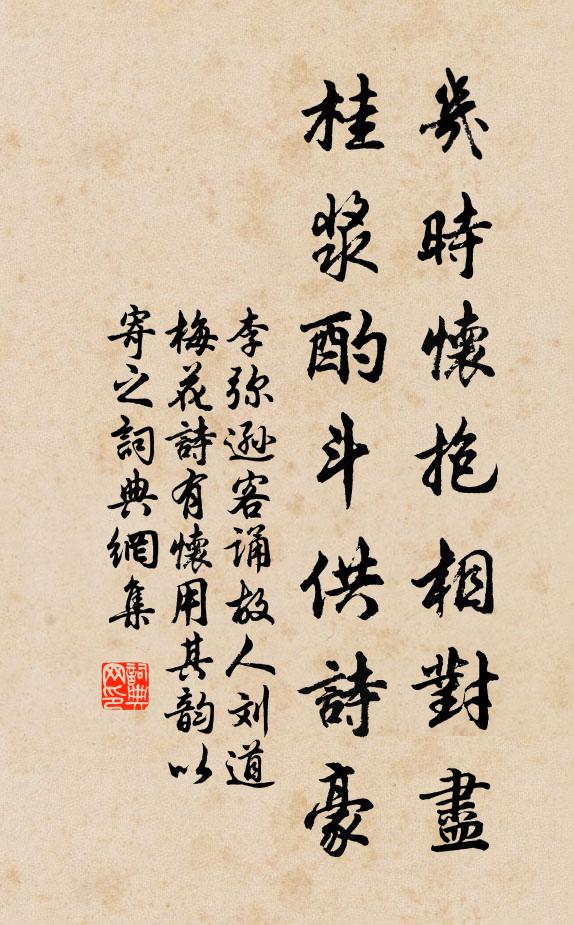 幾時懷抱相對盡
桂漿酌斗供詩豪
李弥遜客誦故人刘道
梅花詩有懷用其韵以
寄之詞典網集
詞典网印